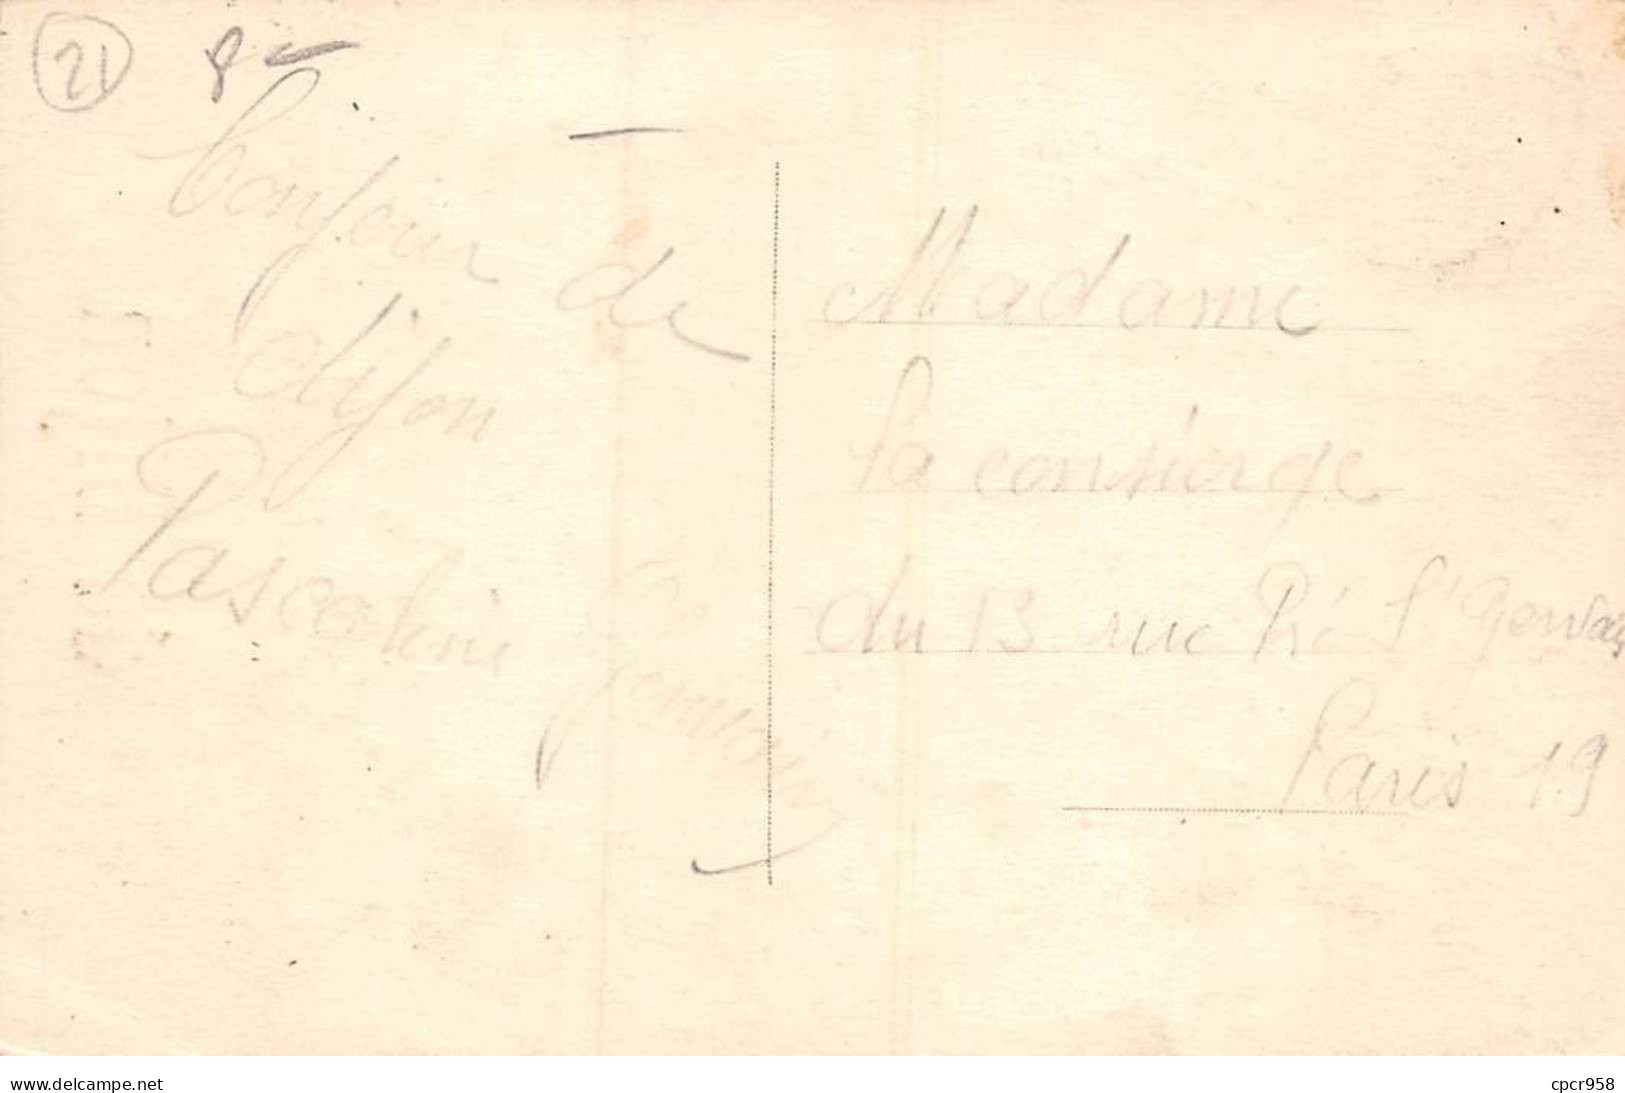 21
8 -
Bonjour de
dijon
Pascoline
Madame
la consierge
du 13 rue Pré St Gervais
Paris 19
www.delcampe.net
cpcr958